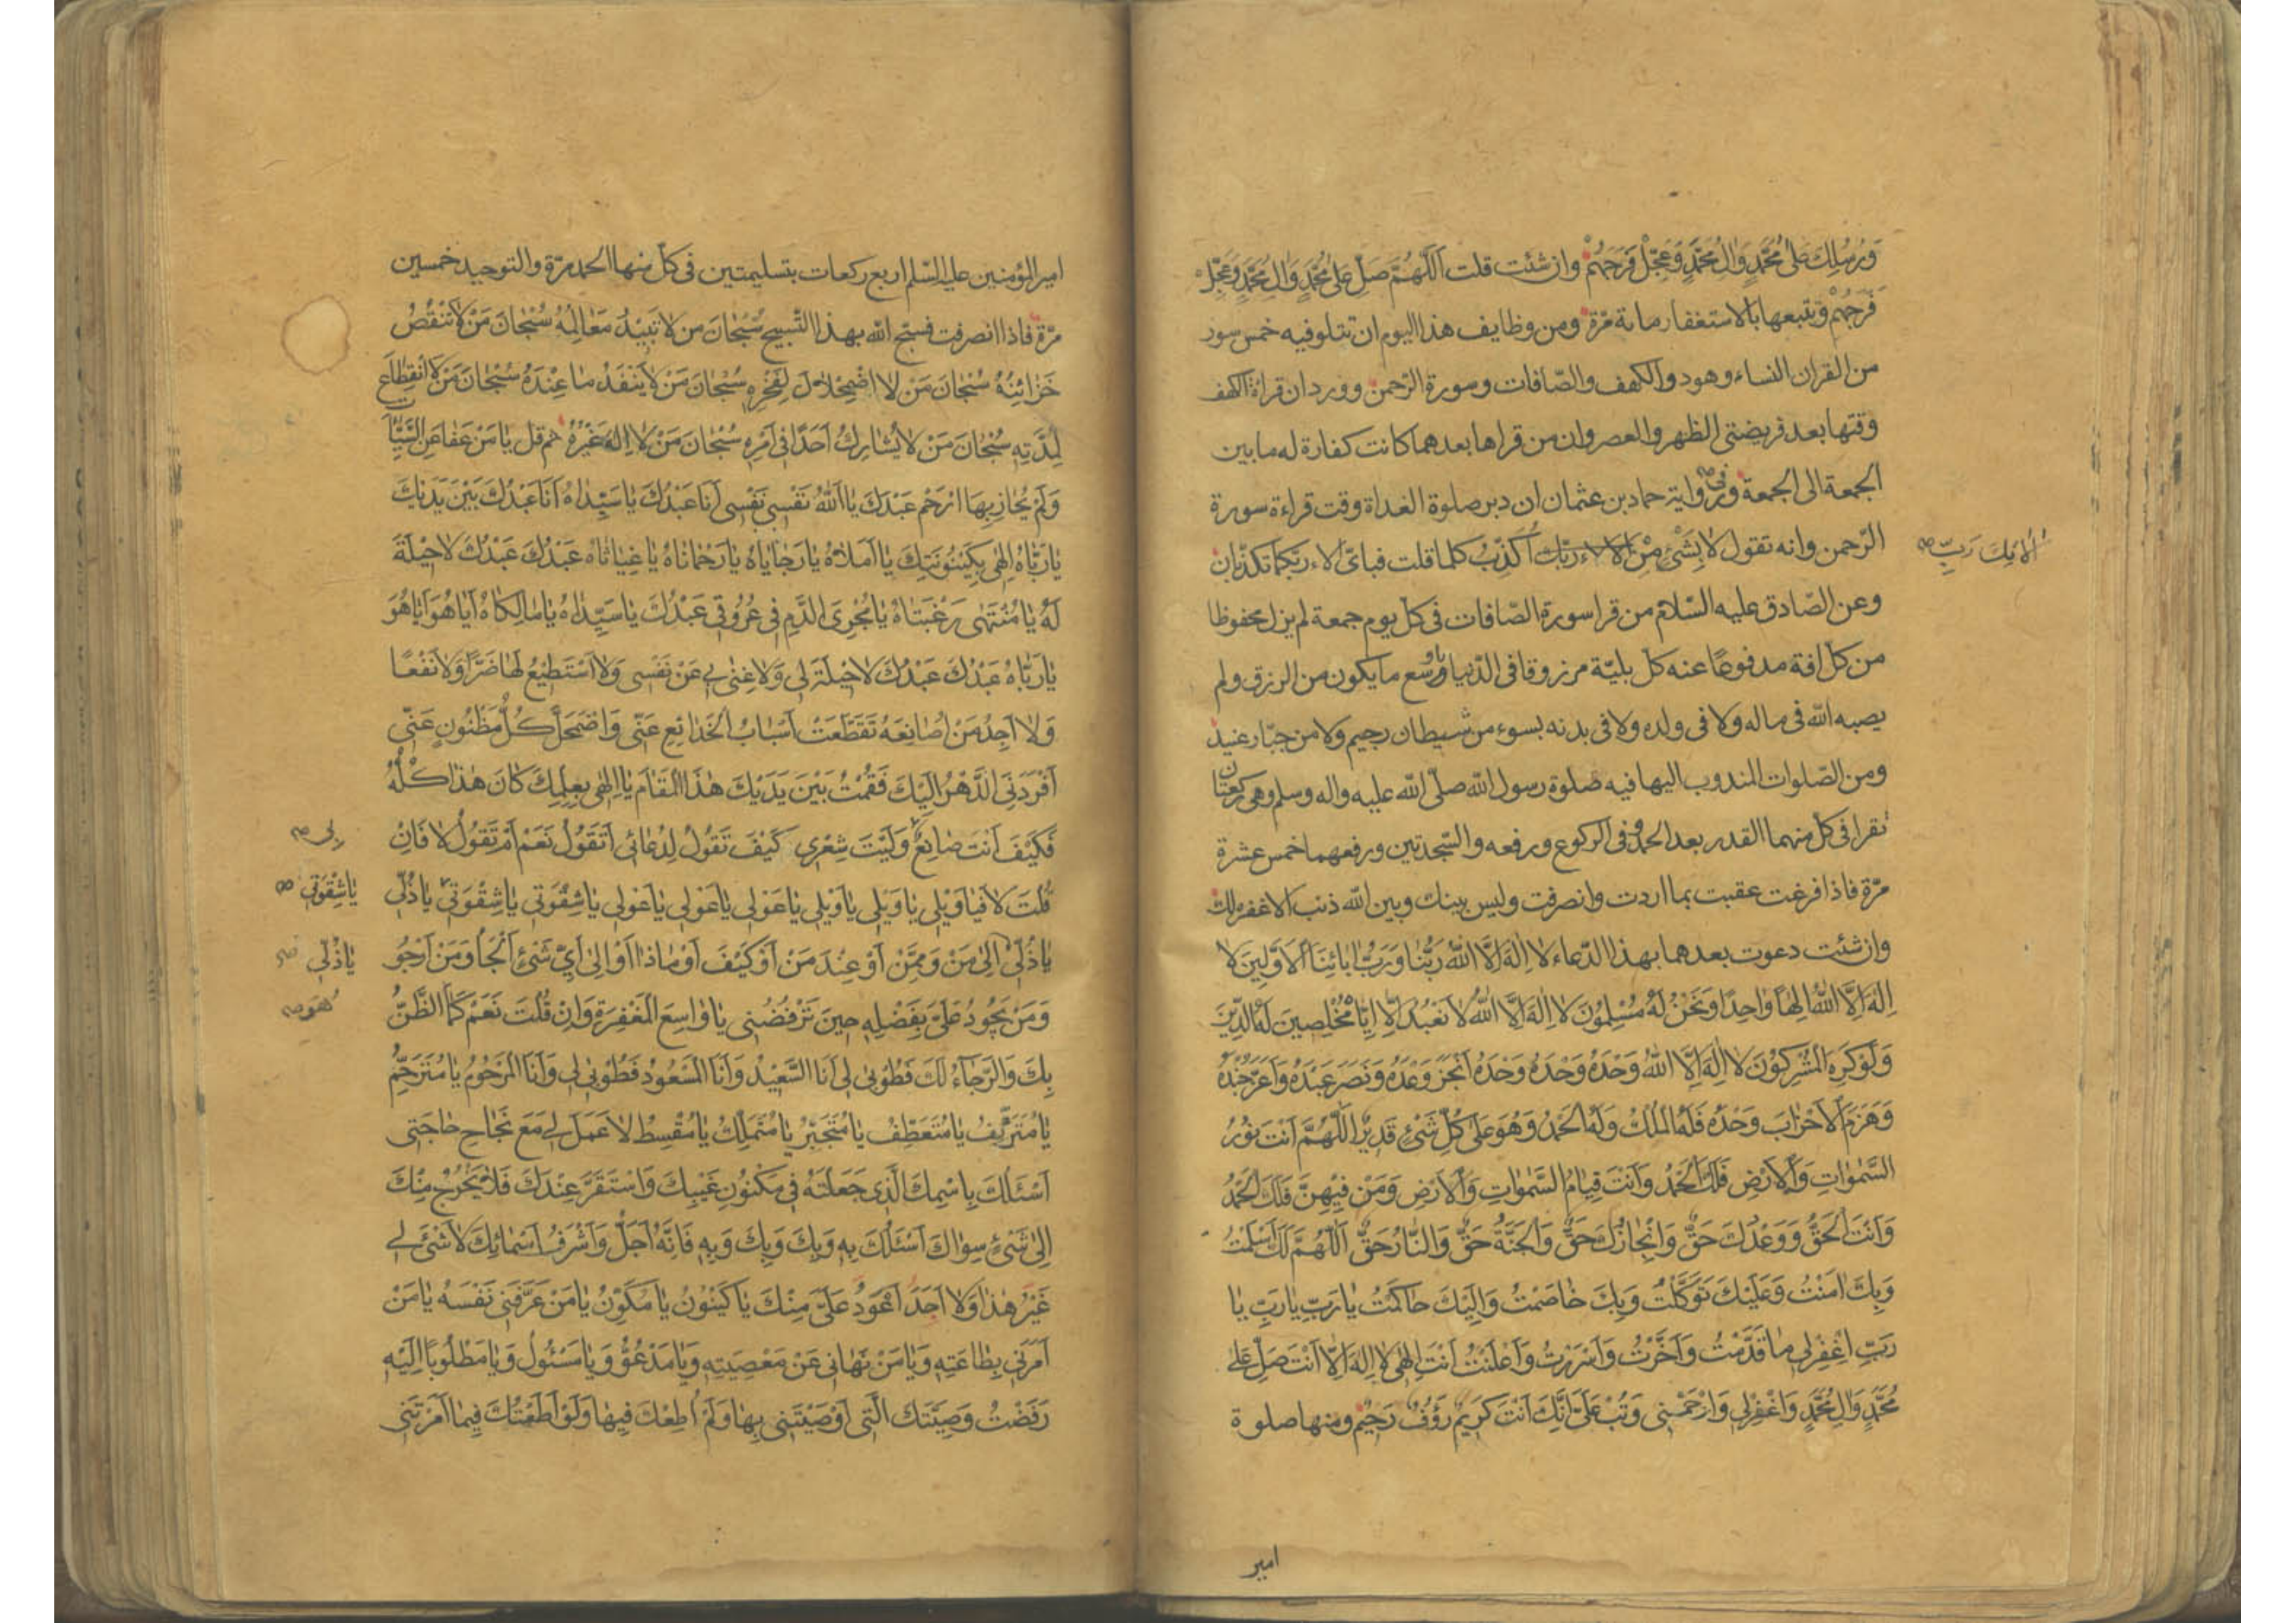 وَرُسُلِكَ عَلٰى مُحَمَّدٍ وَاٰلِ مُحَمَّدٍ وَعَجِّلْ فَرَجَهُمْ وان شئت قلت اَللّٰهُمَّ صَلِّ عَلٰى مُحَمَّدٍ وَاٰلِ مُحَمَّدٍ وَعَجِّلْ
فَرَجَهُمْ وتتبعها بالاستغفار مائة مرّة ومن وظايف هذا اليوم ان تتلو فيه خمس سور
من القران النساء وهود والكهف والصّافات وسورة الرّحمن وورد ان قراءة الكهف
وقتها بعد فريضتى الظهر والعصر وان من قراها بعدهما كانت كفارة له ما بين
الجمعة الى الجمعة وفى رواية حماد بن عثمان ان دبر صلوة الغداة وقت قراءة سورة
الرّحمن وانه تقول لَا بِشَىْءٍ مِنْ اٰلَاءِ رَبِّكَ اُكَذِّبُ كلما قلت فباىّ الاء ربّكما تكذّبان
اٰلَائِكَ رَبِّ صح
وعن الصّادق عليه السّلام من قرا سورة الصّافات فى كلّ يوم جمعة لم يزل محفوظا
من كلّ افة مدفوعًا عنه كلّ بليّة مرزوقا فى الدّنيا باوسع ما يكون من الرزق ولم
يصبه الله فى ماله ولا فى ولده ولا فى بدنه بسوء من شيطان رجيم ولا من جبّار عنيد
ومن الصّلوات المندوب اليها فيه صلوة رسول الله صلّى الله عليه واله وسلم وهى ركعتان
تقرا فى كلّ منهما القدر بعد الحمد وفى الركوع ورفعه والسّجدتين ورفعهما خمس عشرة
مرّة فاذا فرغت عقبت بما اردت وانصرفت وليس بينك وبين الله ذنب الا غفره لك
وان شئت دعوت بعدهما بهذا الدّعاء لَا اِلٰهَ اِلَّا اللّٰهُ رَبُّنَا وَرَبُّ اٰبَائِنَا الْاَوَّلِينَ لَا
اِلٰهَ اِلَّا اللّٰهُ اِلٰهًا وَاحِدًا وَنَحْنُ لَهُ مُسْلِمُونَ لَا اِلٰهَ اِلَّا اللّٰهُ لَا نَعْبُدُ اِلَّا اِيَّاهُ مُخْلِصِينَ لَهُ الدِّينَ
وَلَوْ كَرِهَ الْمُشْرِكُونَ لَا اِلٰهَ اِلَّا اللّٰهُ وَحْدَهُ وَحْدَهُ وَحْدَهُ اَنْجَزَ وَعْدَهُ وَنَصَرَ عَبْدَهُ وَاَعَزَّ جُنْدَهُ
وَهَزَمَ الْاَحْزَابَ وَحْدَهُ فَلَهُ الْمُلْكُ وَلَهُ الْحَمْدُ وَهُوَ عَلٰى كُلِّ شَىْءٍ قَدِيرٌ اَللّٰهُمَّ اَنْتَ نُورُ
السَّمٰوَاتِ وَالْاَرْضِ فَلَكَ الْحَمْدُ وَاَنْتَ قِيَامُ السَّمٰوَاتِ وَالْاَرْضِ وَمَنْ فِيهِنَّ فَلَكَ الْحَمْدُ
وَاَنْتَ الْحَقُّ وَوَعْدُكَ حَقٌّ وَاِنْجَازُكَ حَقٌّ وَالْجَنَّةُ حَقٌّ وَالنَّارُ حَقٌّ اَللّٰهُمَّ لَكَ اَسْلَمْتُ
وَبِكَ اٰمَنْتُ وَعَلَيْكَ تَوَكَّلْتُ وَبِكَ خَاصَمْتُ وَاِلَيْكَ حَاكَمْتُ يَا رَبِّ يَا رَبِّ يَا
رَبِّ اغْفِرْ لِى مَا قَدَّمْتُ وَاَخَّرْتُ وَاَسْرَرْتُ وَاَعْلَنْتُ اَنْتَ اِلٰهِى لَا اِلٰهَ اِلَّا اَنْتَ صَلِّ عَلٰى
مُحَمَّدٍ وَاٰلِ مُحَمَّدٍ وَاغْفِرْ لِى وَارْحَمْنِى وَتُبْ عَلَىَّ اِنَّكَ اَنْتَ كَرِيمٌ رَؤُفٌ رَحِيمٌ ومنها صلوة
امير
امير المؤمنين عليه السّلم اربع ركعات بتسليمتين فى كلّ منها الحمد مرّة والتوحيد خمسين
مرّة فاذا انصرفت فسبّح الله بهذا التّسبيح سُبْحَانَ مَنْ لَا تَبِيدُ مَعَالِمُهُ سُبْحَانَ مَنْ لَا تَنْقُصُ
خَزَائِنُهُ سُبْحَانَ مَنْ لَا اضْمِحْلَالَ لِفَخْرِهِ سُبْحَانَ مَنْ لَا يَنْفَدُ مَا عِنْدَهُ سُبْحَانَ مَنْ لَا انْقِطَاعَ
لِمُدَّتِهِ سُبْحَانَ مَنْ لَا يُشَارِكُ اَحَدًا فِى اَمْرِهِ سُبْحَانَ مَنْ لَا اِلٰهَ غَيْرُهُ ثم قل يَا مَنْ عَفَا عَنِ السَّيِّاٰتِ
وَلَمْ يُجَازِ بِهَا ارْحَمْ عَبْدَكَ يَا اَللّٰهُ نَفْسِى نَفْسِى اَنَا عَبْدُكَ يَا سَيِّدَاهُ اَنَا عَبْدُكَ بَيْنَ يَدَيْكَ
يَا رَبَّاهُ اِلٰهِى بِكَيْنُونَتِكَ يَا اَمَلَاهُ يَا رَجَايَاهُ يَا رَحْمَانَاهُ يَا غِيَاثَاهُ عَبْدُكَ عَبْدُكَ لَا حِيلَةَ
لَهُ يَا مُنْتَهٰى رَغْبَتَاهُ يَا مُجْرِىَ الدَّمِ فِى عُرُوقِى عَبْدُكَ يَا سَيِّدَاهُ يَا مَالِكَاهُ اَيَا هُوَ اَيَا هُوَ
يَا رَبَّاهُ عَبْدُكَ عَبْدُكَ لَا حِيلَةَ لِى وَلَا غِنٰى بِى عَنْ نَفْسِى وَلَا اَسْتَطِيعُ لَهَا ضَرًّا وَلَا نَفْعًا
وَلَا اَجِدُ مَنْ اُصَانِعُهُ تَقَطَّعَتْ اَسْبَابُ الْخَدَائِعِ عَنِّى وَاضْمَحَلَّ كُلُّ مَظْنُونٍ عَنِّى
اَفْرَدَنِى الدَّهْرُ اِلَيْكَ فَقُمْتُ بَيْنَ يَدَيْكَ هٰذَا الْمَقَامَ يَا اِلٰهِى بِعِلْمِكَ كَانَ هٰذَا كُلُّهُ
فَكَيْفَ اَنْتَ صَانِعٌ وَلَيْتَ شِعْرِى كَيْفَ تَقُولُ لِدُعَائِى اَتَقُولُ نَعَمْ اَمْ تَقُولُ لَا فَاِنْ
بِى صح
قُلْتَ لَا فَيَا وَيْلِى يَا وَيْلِى يَا وَيْلِى يَا عَوْلِى يَا عَوْلِى يَا عَوْلِى يَا شِقْوَتِى يَا شِقْوَتِى يَا ذُلِّى
يَا شِقْوَتِى صح
يَا ذُلِّى اِلٰى مَنْ وَمِمَّنْ اَوْ عِنْدَ مَنْ اَوْ كَيْفَ اَوْ مَاذَا اَوْ اِلٰى اَىِّ شَىْءٍ اَلْجَاُ وَمَنْ اَرْجُو
يَا ذُلِّى صح
وَمَنْ يَجُودُ عَلَىَّ بِفَضْلِهِ حِينَ تَرْفُضُنِى يَا وَاسِعَ الْمَغْفِرَةِ وَاِنْ قُلْتَ نَعَمْ كَمَا الظَّنُّ
هُوَ صح
بِكَ وَالرَّجَاءُ لَكَ فَطُوبٰى لِى اَنَا السَّعِيدُ وَاَنَا الْمَسْعُودُ فَطُوبٰى لِى وَاَنَا الْمَرْحُومُ يَا مُتَرَحِّمُ
يَا مُتَرَئِّفُ يَا مُتَعَطِّفُ يَا مُتَجَبِّرُ يَا مُتَمَلِّكُ يَا مُقْسِطُ لَا عَمَلَ لِى مَعَ نَجَاحِ حَاجَتِى
اَسْئَلُكَ بِاسْمِكَ الَّذِى جَعَلْتَهُ فِى مَكْنُونِ غَيْبِكَ وَاسْتَقَرَّ عِنْدَكَ فَلَا يَخْرُجُ مِنْكَ
اِلٰى شَىْءٍ سِوَاكَ اَسْئَلُكَ بِهِ وَبِكَ وَبِكَ وَبِهِ فَاِنَّهُ اَجَلُّ وَاَشْرَفُ اَسْمَائِكَ لَا شَىْءَ لِى
غَيْرُ هٰذَا وَلَا اَحَدَ اَعْوَدُ عَلَىَّ مِنْكَ يَا كَيْنُونُ يَا مُكَوِّنُ يَا مَنْ عَرَّفَنِى نَفْسَهُ يَا مَنْ
اَمَرَنِى بِطَاعَتِهِ وَيَا مَنْ نَهَانِى عَنْ مَعْصِيَتِهِ وَيَا مَدْعُوُّ وَيَا مَسْئُولُ وَيَا مَطْلُوبًا اِلَيْهِ
رَفَضْتُ وَصِيَّتَكَ الَّتِى اَوْصَيْتَنِى بِهَا وَلَمْ اُطِعْكَ فِيهَا وَلَوْ اَطَعْتُكَ فِيمَا اَمَرْتَنِى